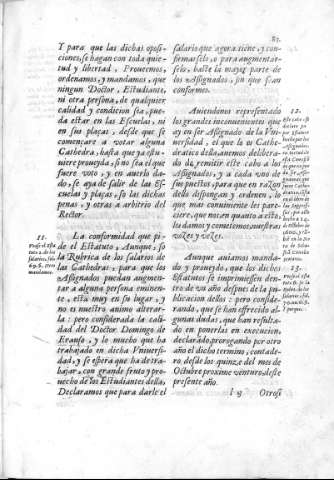 87.
Y para que las dichas oposi-
ciones, se hagan con toda quie-
tud y libertad, Proueemos,
ordenamos, y mandamos, que
ningun Doctor, Estudiante,
ni otra persona, de qualquier
calidad y condicion sea, pue-
da estar en las Escuelas, ni
en sus plaças, desde que se
començare a votar alguna
Cathedra, hasta que ya estu-
uiere proueyda, si no sea el que
fuere voto, y en auerlo da-
do, se aya de salir de las Es-
cuelas y plaças, so las dichas
penas, y otras a arbitrio del
Rector.
11.
La conformidad que pi-
de el Estatuto, Aunque, so
la Rubrica de los salarios de
las Cathedras: para que los
Assignados puedan augmen-
tar a alguna persona eminen-
te, està muy en su lugar, y
no es nuestro animo alterar-
la: pero considerada la cali-
dad del Doctor Domingo de
Erauso, y lo mucho que ha
trabajado en dicha Vniuersi-
dad, y se espera que ha de tra-
bajar, con grande fruto y pro-
uecho de los Estudiantes della,
Declaramos que para darle el
salario que agora tiene, y con-
firmarselo, o para augmentar-
selo, baste la mayor parte de
los Assignados, sin que sean
conformes.
12.
Auiendonos representado
los grandes inconuenientes que
ay en ser Assignado de la Vni-
uersidad, el que lo es Cathe-
dratico della, auemos delibera-
do de remitir este cabo a los
Assignados, y a cada vno de
sus puestos, para que en razon
dello dispongan y ordenen, lo
que mas conuiniente les pare-
ciere, que no en quanto a esto,
les damos y cometemos nuestras
vozes y vezes.
13.
Aunque auiamos manda-
do y proueydo, que los dichos
Estatutos se imprimiessen den-
tro de vn año despues de la pu-
blicacion dellos: pero conside-
rando, que se han offrecido al-
gunas dudas, que han resulta-
do en ponerlas en execucion,
declarado, prorogando por otro
año el dicho termino, contade-
ro, desde los quinze del mes de
Octubre proxime venturo, deste
presente año.
Otrosi